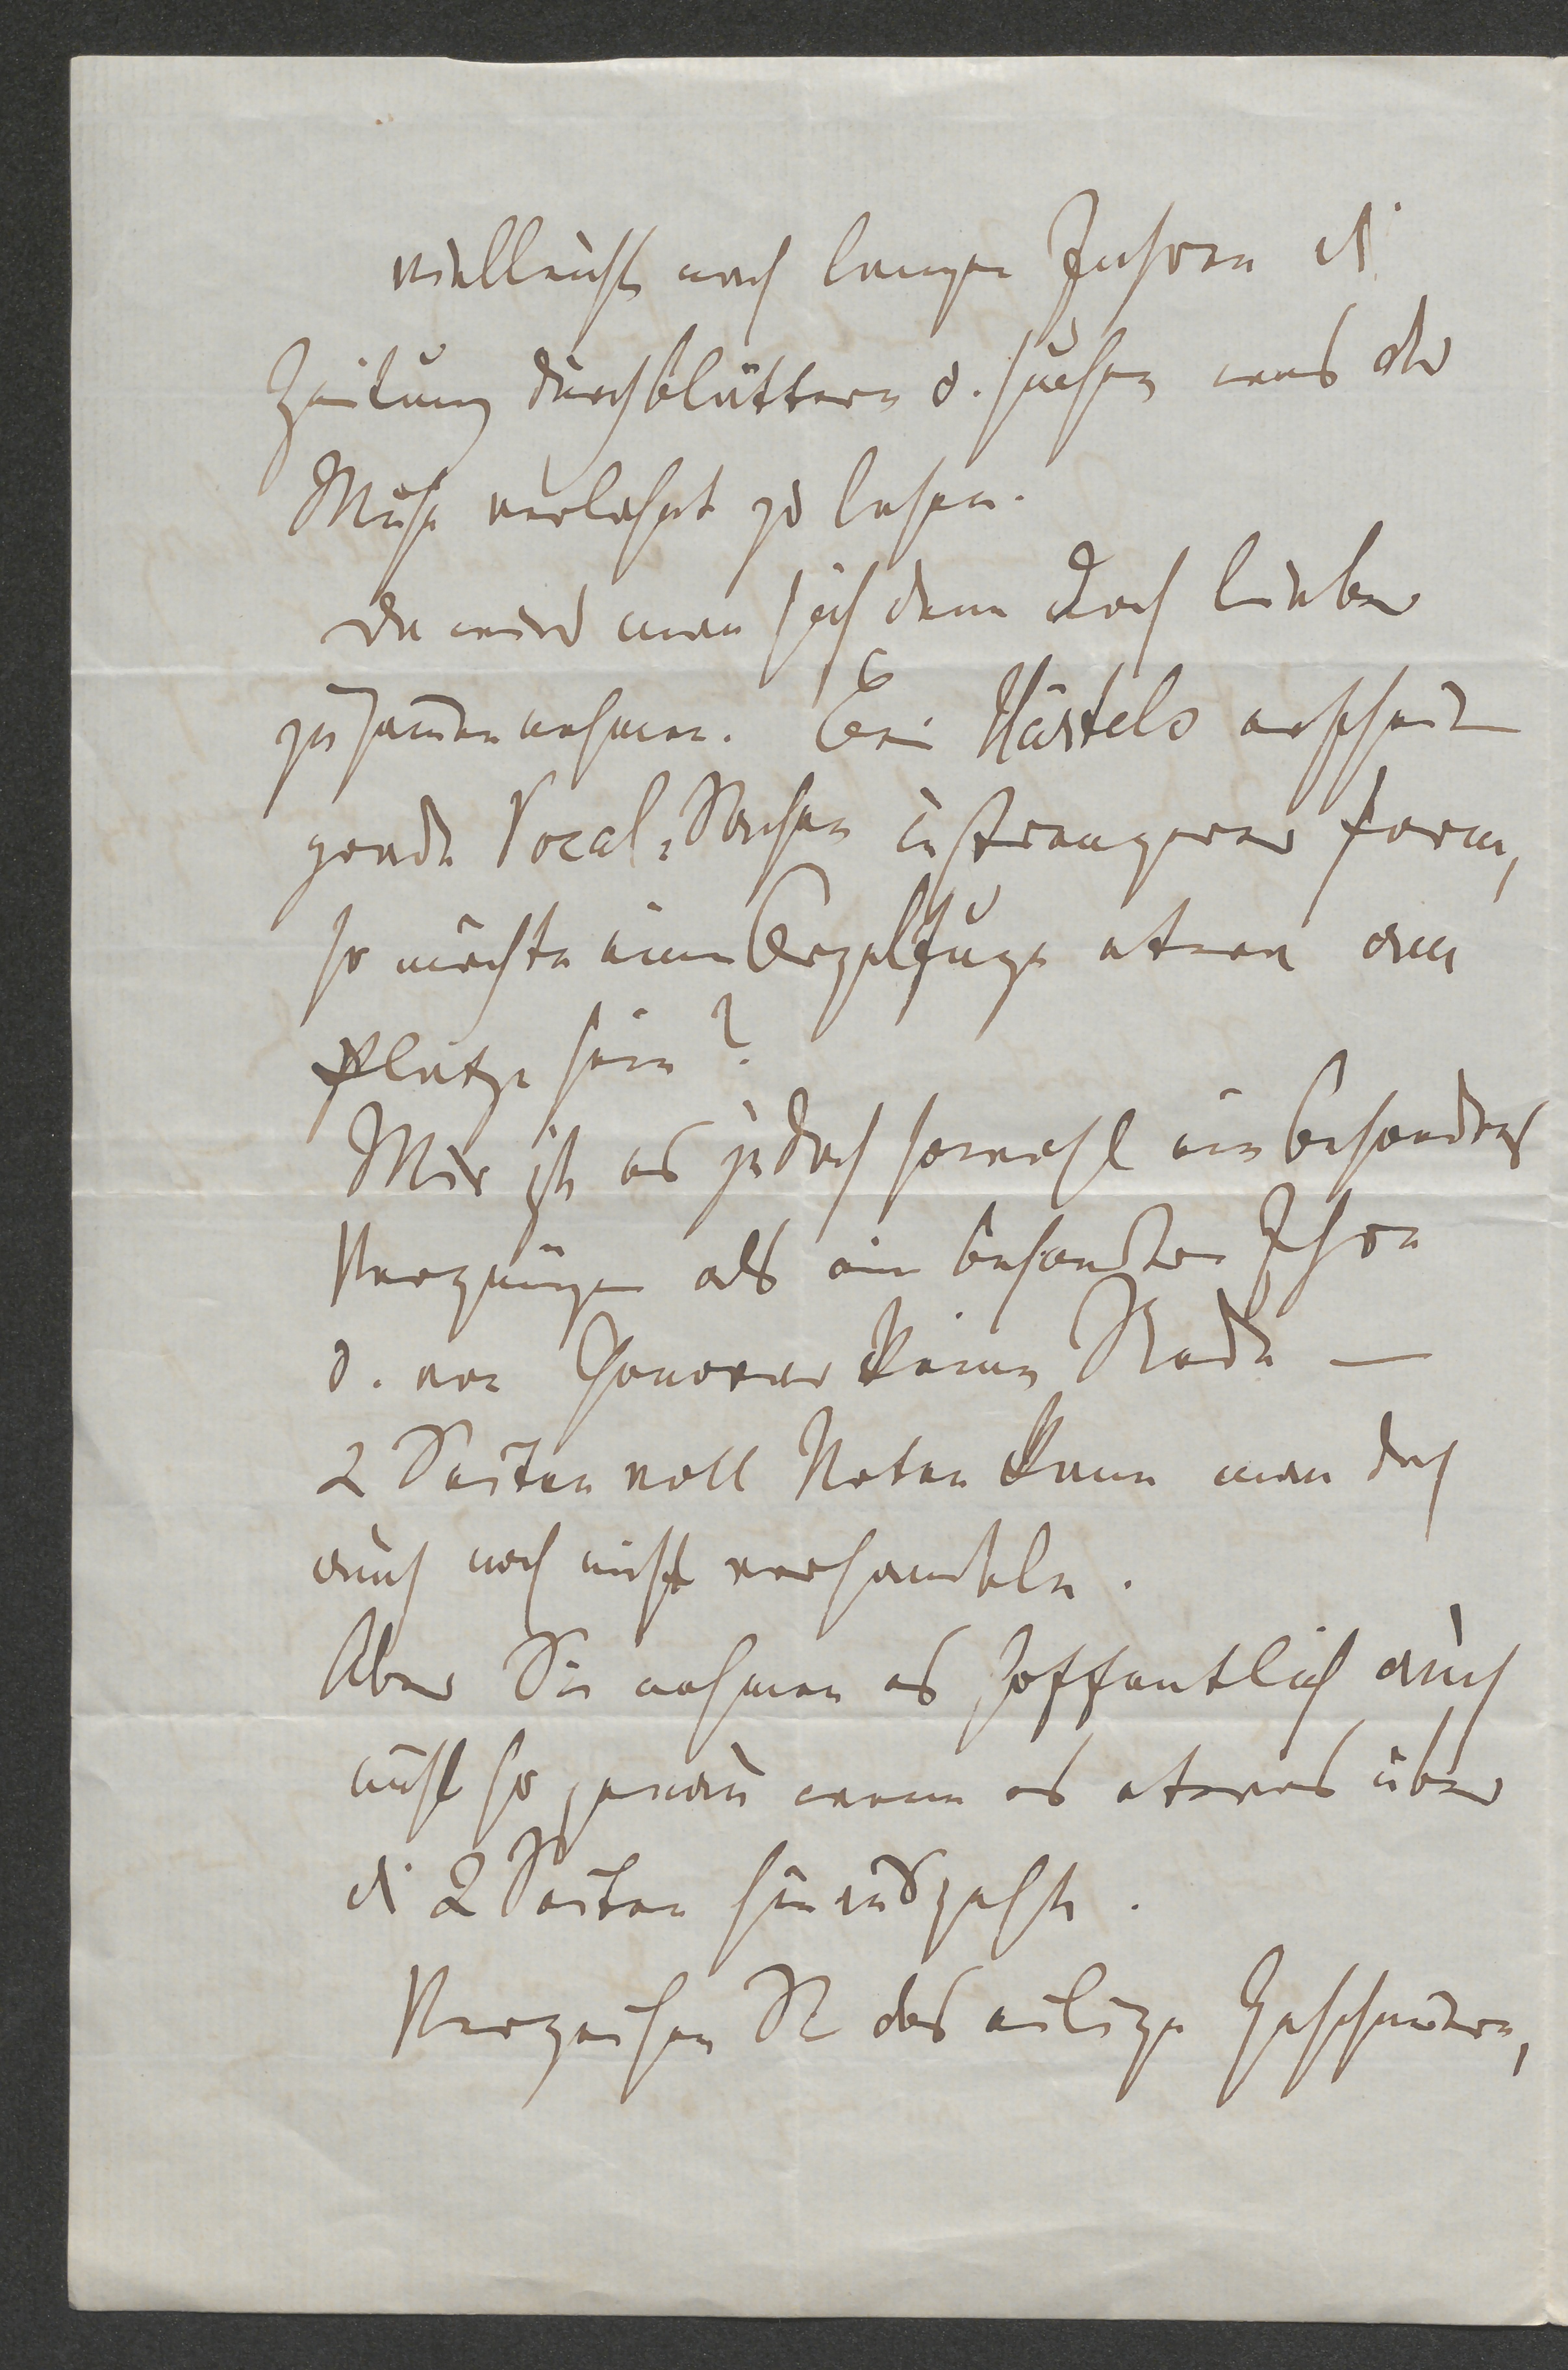 vielleicht nach langen Jahren die
Zeitung durchblättern u. suchen was der
Mühe verlohnt zu lesen.
Da wird man sich denn doch lieber
zusammennehmen. Bei Härtels erscheinen
grade Vocal-Sachen in strengerer Form,
so möchte eine Orgelfuge etwa am
Platze sein?
Mir ist es jedoch sowohl ein besondres
Vergnügen als eine besondre Ehre
u. von Honorar keine Rede —
2 Seiten voll Noten kann man doch
auch noch nicht verhandeln.
Aber Sie nehmen es hoffentlich auch
nicht so genau wenn es etwas über
die 2 Seiten hinausgeht.
Verzeihen Sie das eilige Geschmiere,